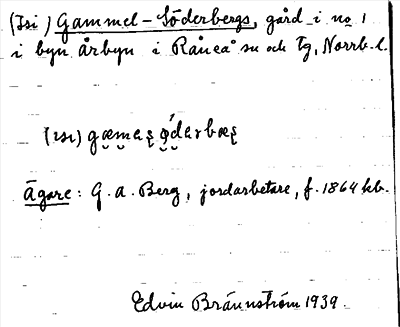 (Isi) Gammel-Söderbergs, gård i no 1
i byn Årbyn i Råneå sn och tg, Norrb. l.
(ısı) gæmeɛ̨ ǿdɛrbæʂ
Ägare: G. A. Berg, jordarbetare, f. 1864 kb.
Edvin Brännström 1939.